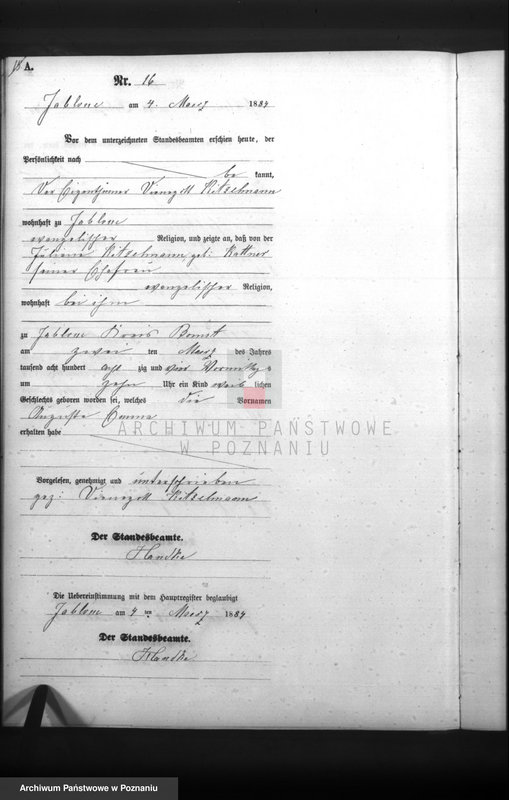 A.
Nr. 16
Jablone am 4. März 1884
Vor dem unterzeichneten Standesbeamten erschien heute, der
Persönlichkeit nach
be kannt,
Der Eigenthümer Kitzelmann
wohnhaft zu Jablone
evangelischer Religion, und zeigte an, daß von der
Juliane Kitzelmann, geb: Kattner
seiner Ehefrau
evangelischer Religion,
wohnhaft bei ihm
zu Jablone Kreis Bomst
am zwei ten März des Jahres
tausend acht hundert acht zig und vier Vormittags
um zehn Uhr ein Kind weib lichen
Geschlechts geboren worden sei, welches die Vornamen
Auguste Emma
erhalten habe
ARCHIWUM PAŃSTWOWE
W POZNANIU
Vorgelesen, genehmigt und unterschrieben
gez: Kitzelmann
Der Standesbeamte.
Handke
Die Uebereinstimmung mit dem Hauptregister beglaubigt
Jablone am 4 ten März 1884
Der Standesbeamte.
Handke
Archiwum Państwowe w Poznaniu